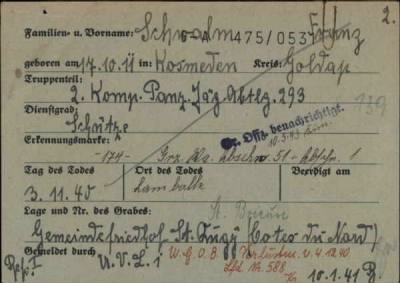 2.
Familien- u. Vorname: Schwalm Franz
G-A 475/053
geboren am 17.10.11 in: Kosmeden Kreis: Goldap
Truppenteil:
2. Komp. Panz. Jäg. Abtlg. 293
139
Dienstgrad:
Schütze
Offz. benachrichtigt.
Erkennungsmarke:
-174- Grz. Wa. Abschn. 51 - Abschn. 1
Tag des Todes Ort des Todes Beerdigt am
3.11.40 Lamballe
Lage und Nr. des Grabes: St. Brieuc
Gemeindefriedhof St. (Cotes du Nord)
Gemeldet durch W.G.O.B. Verlustm. v. 4.12.40
U.V.L. 1 Lfd. Nr. 588
10.1.41